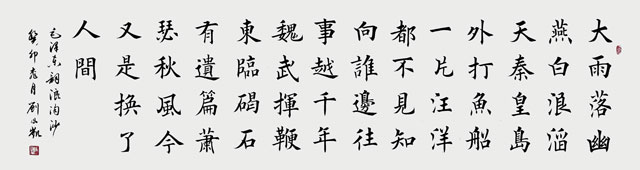 大雨落幽
燕白浪滔
天秦皇島
外打魚船
一片汪洋
都不見知
向誰邊往
事越千年
魏武揮鞭
東臨碣石
有遺篇蕭
瑟秋風今
又是換了
人間
毛泽东詞浪淘沙
癸卯